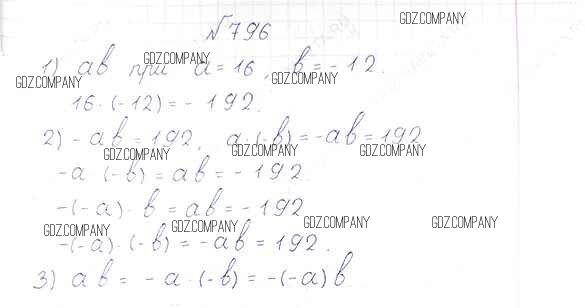 №796
GDZ.COMPANY
1) ab при a = 16, b = -12.
GDZ.COMPANY GDZ.COMPANY GDZ.COMPANY
16 · (-12) = - 192.
2) - ab = 192, a · (-b) = -ab = 192
GDZ.COMPANY GDZ.COMPANY GDZ.COMPANY
-a · (-b) = ab = - 192
-(-a) · b = ab = - 192
GDZ.COMPANY GDZ.COMPANY GDZ.COMPANY GDZ.COMPANY
-(-a) · (-b) = -ab = 192.
3) ab = -a · (-b) = -(-a)b